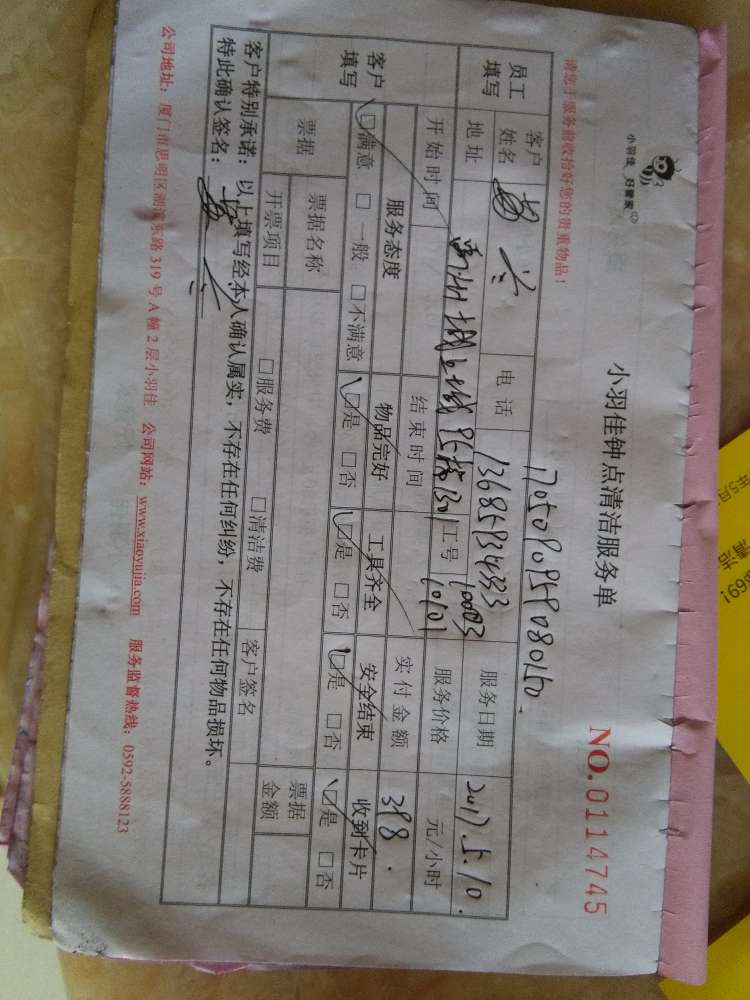 小羽佳 好管家
小羽佳钟点清洁服务单
NO.0114745
请您于服务前收拾好您的贵重物品！
1705090959080150
员工填写
客户姓名
电话 13685934333
服务日期 2017.5.10.
地址
工号 10003 10101
服务价格 元/小时
开始时间
结束时间
实付金额 398.
客户填写
服务态度 物品完好 工具齐全 安全结束 收到卡片
☑满意 □一般 □不满意 ☑是 □否 ☑是 □否 ☑是 □否 ☑是 □否
票据
票据名称
开票项目 □服务费 □清洁费
客户签名
票据金额
客户特别承诺：以上填写经本人确认属实，不存在任何纠纷，不存在任何物品损坏。
特此确认签名：
公司地址：厦门市思明区湖滨东路319号A幢2层小羽佳 公司网站：www.xiaoyujia.com 服务监督热线：0592-5888123
年5月
清洁
69!